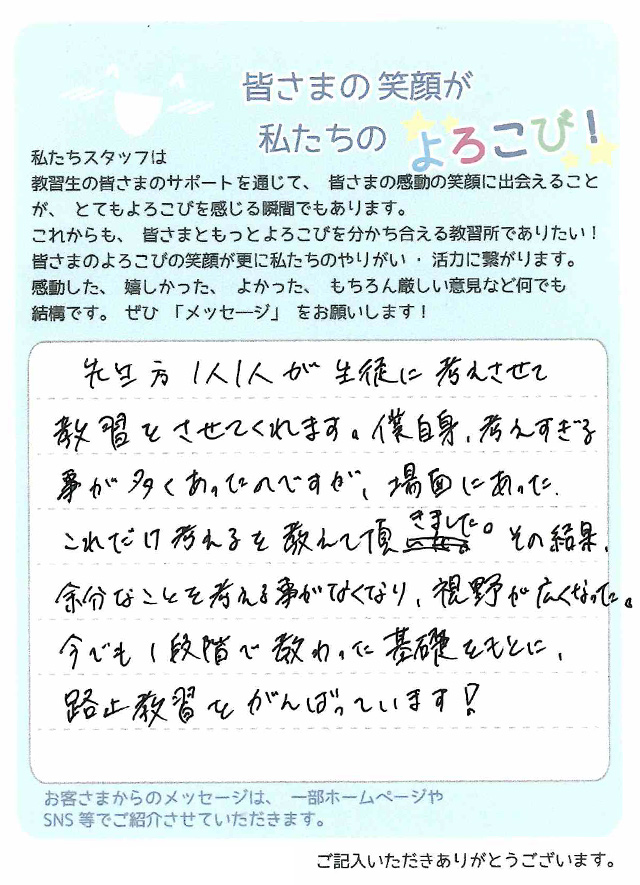 皆さまの笑顔が
私たちの よろこび！
私たちスタッフは
教習生の皆さまのサポートを通じて、 皆さまの感動の笑顔に出会えること
が、 とてもよろこびを感じる瞬間でもあります。
これからも、 皆さまともっとよろこびを分かち合える教習所でありたい！
皆さまのよろこびの笑顔が更に私たちのやりがい・活力に繋がります。
感動した、 嬉しかった、 よかった、 もちろん厳しい意見など何でも
結構です。 ぜひ 「メッセージ」 をお願いします！
先生方 1人1人が 生徒に 考えさせて
教習をさせてくれます。僕自身、考えすぎる
事が多くあったのですが、場面にあった、
これだけ考えるを教えて頂きました。その結果、
余分なことを考える事がなくなり、視野が広くなった。
今でも1段階で教わった基礎をもとに、
路上教習をがんばっています！
お客さまからのメッセージは、 一部ホームページや
SNS 等でご紹介させていただきます。
ご記入いただきありがとうございます。